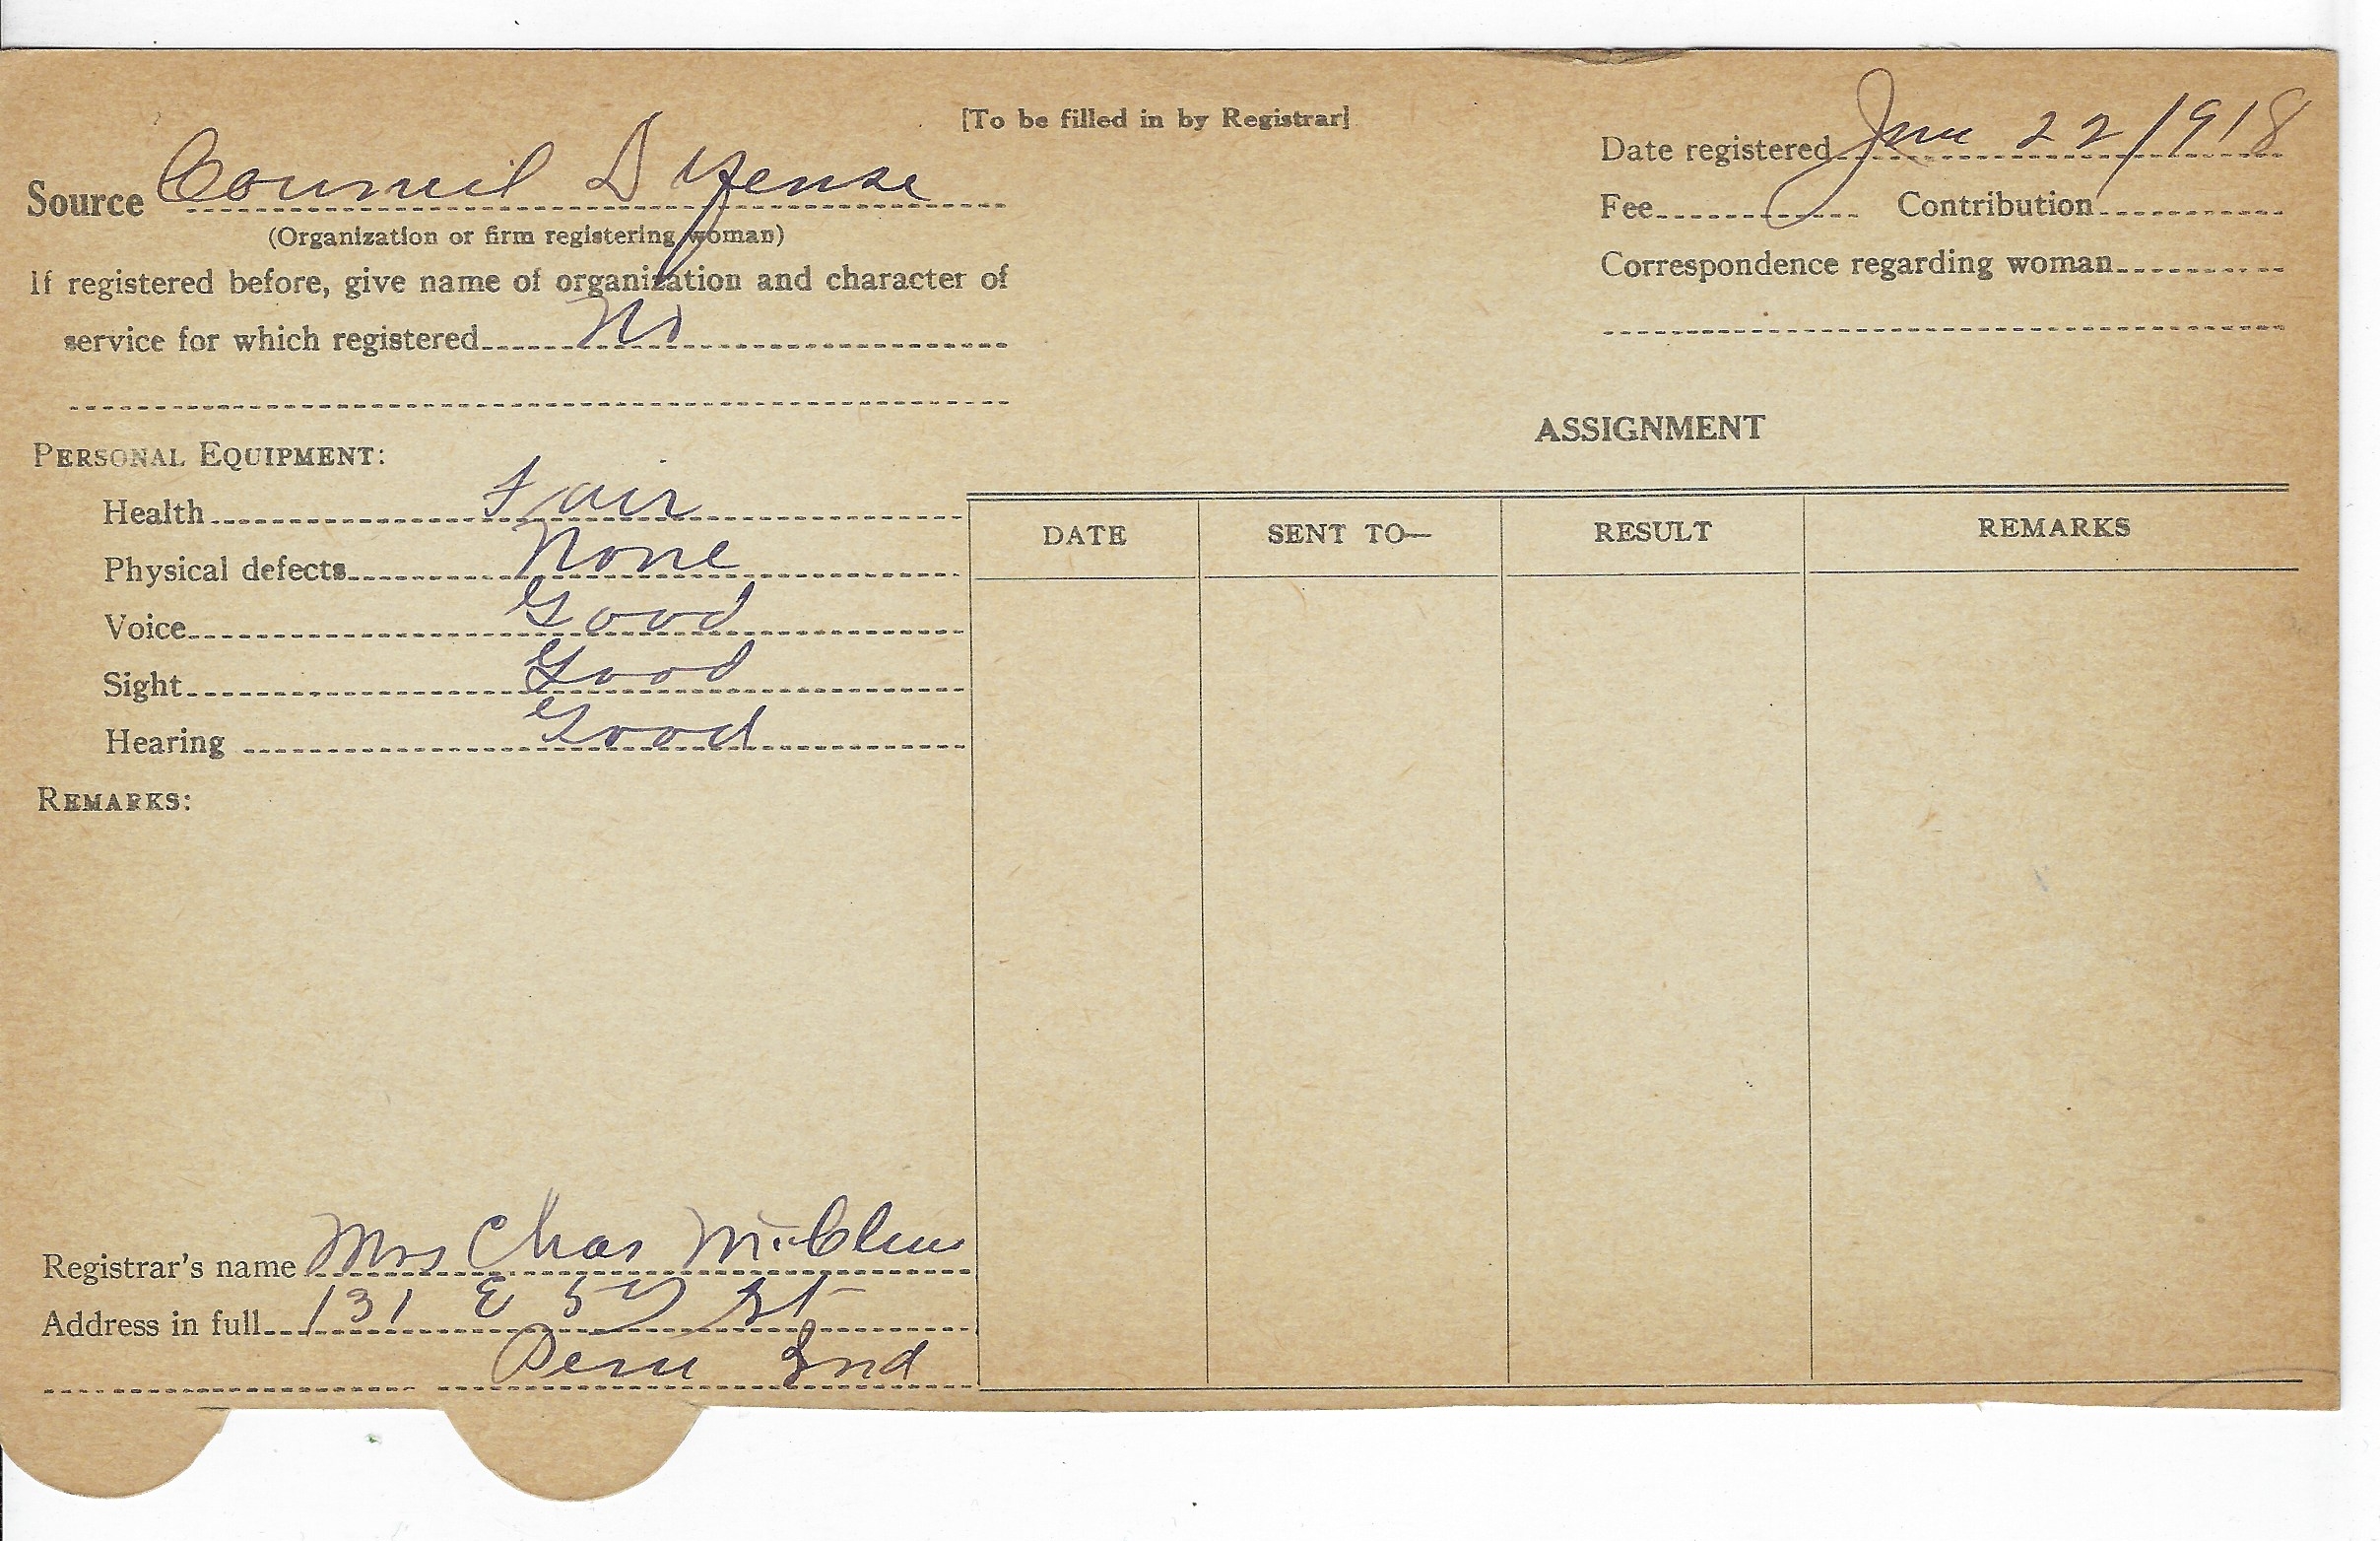 [To be filled in by Registrar]
Source Council Defense
(Organization or firm registering woman)
If registered before, give name of organization and character of
service for which registered No
Date registered 22/1918
Fee Contribution
Correspondence regarding woman
PERSONAL EQUIPMENT:
Health Fair
Physical defects None
Voice Good
Sight Good
Hearing Good
REMARKS:
ASSIGNMENT
DATE SENT TO— RESULT REMARKS
Registrar's name Mrs Chas
Address in full 131 E 5 St
Peru Ind